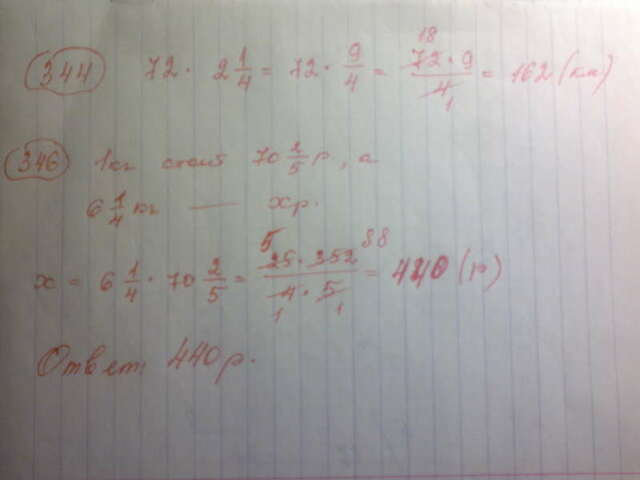 344 72 · 2 1/4 = 72 · 9/4 = 18 72 · 9 / 4 1 = 162 (км)
346 1кг стоит 70 2/5 р, а
6 1/4 кг — х р.
х = 6 1/4 · 70 2/5 = 5 25 · 352 88 / 4 · 5 1 1 = 440 (р)
Ответ: 440 р.